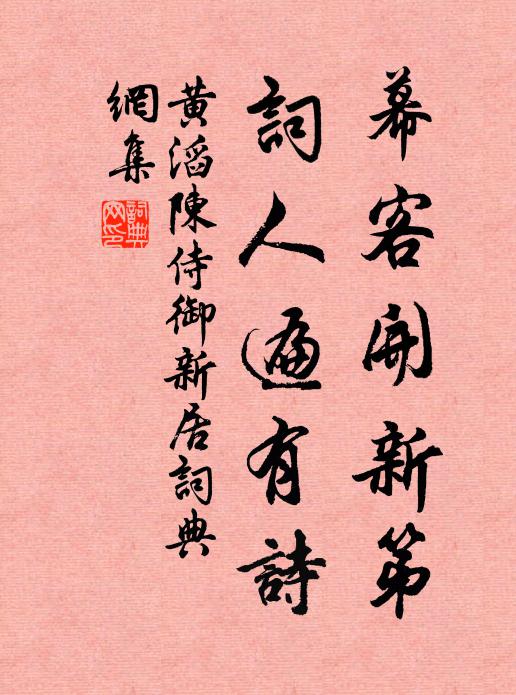 幕客開新第
詞人遍有詩
黄滔陳侍御新居詞典
網集
詞典
网印